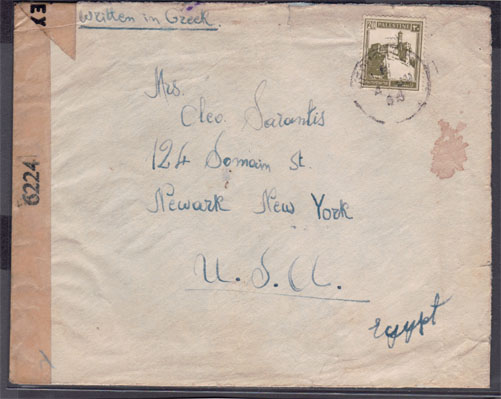 EY
Written in Greek.
PALESTINE
Mrs.
Cleo Sarantis
124 Somain St.
Newark New York
U.S.A.
Egypt
6224